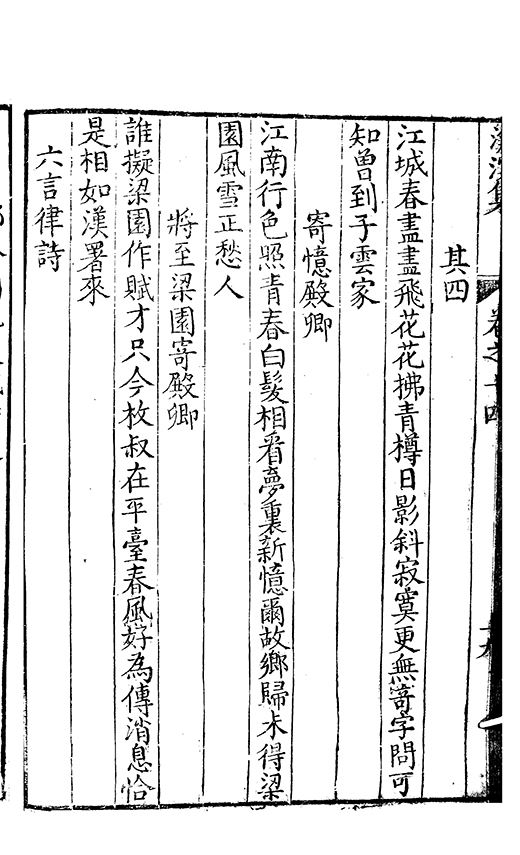 其四
江城春盡盡飛花花拂青樽日影斜寂寞更無竒字問可
知曽到子雲家
寄憶殿卿
江南行色照青春白髮相看夢裏新憶爾故鄉歸未得梁
園風雪正愁人
將至梁園寄殿卿
誰擬梁園作賦才只今枚叔在平臺春風好為傳消息恰
是相如漢署來
六言律詩